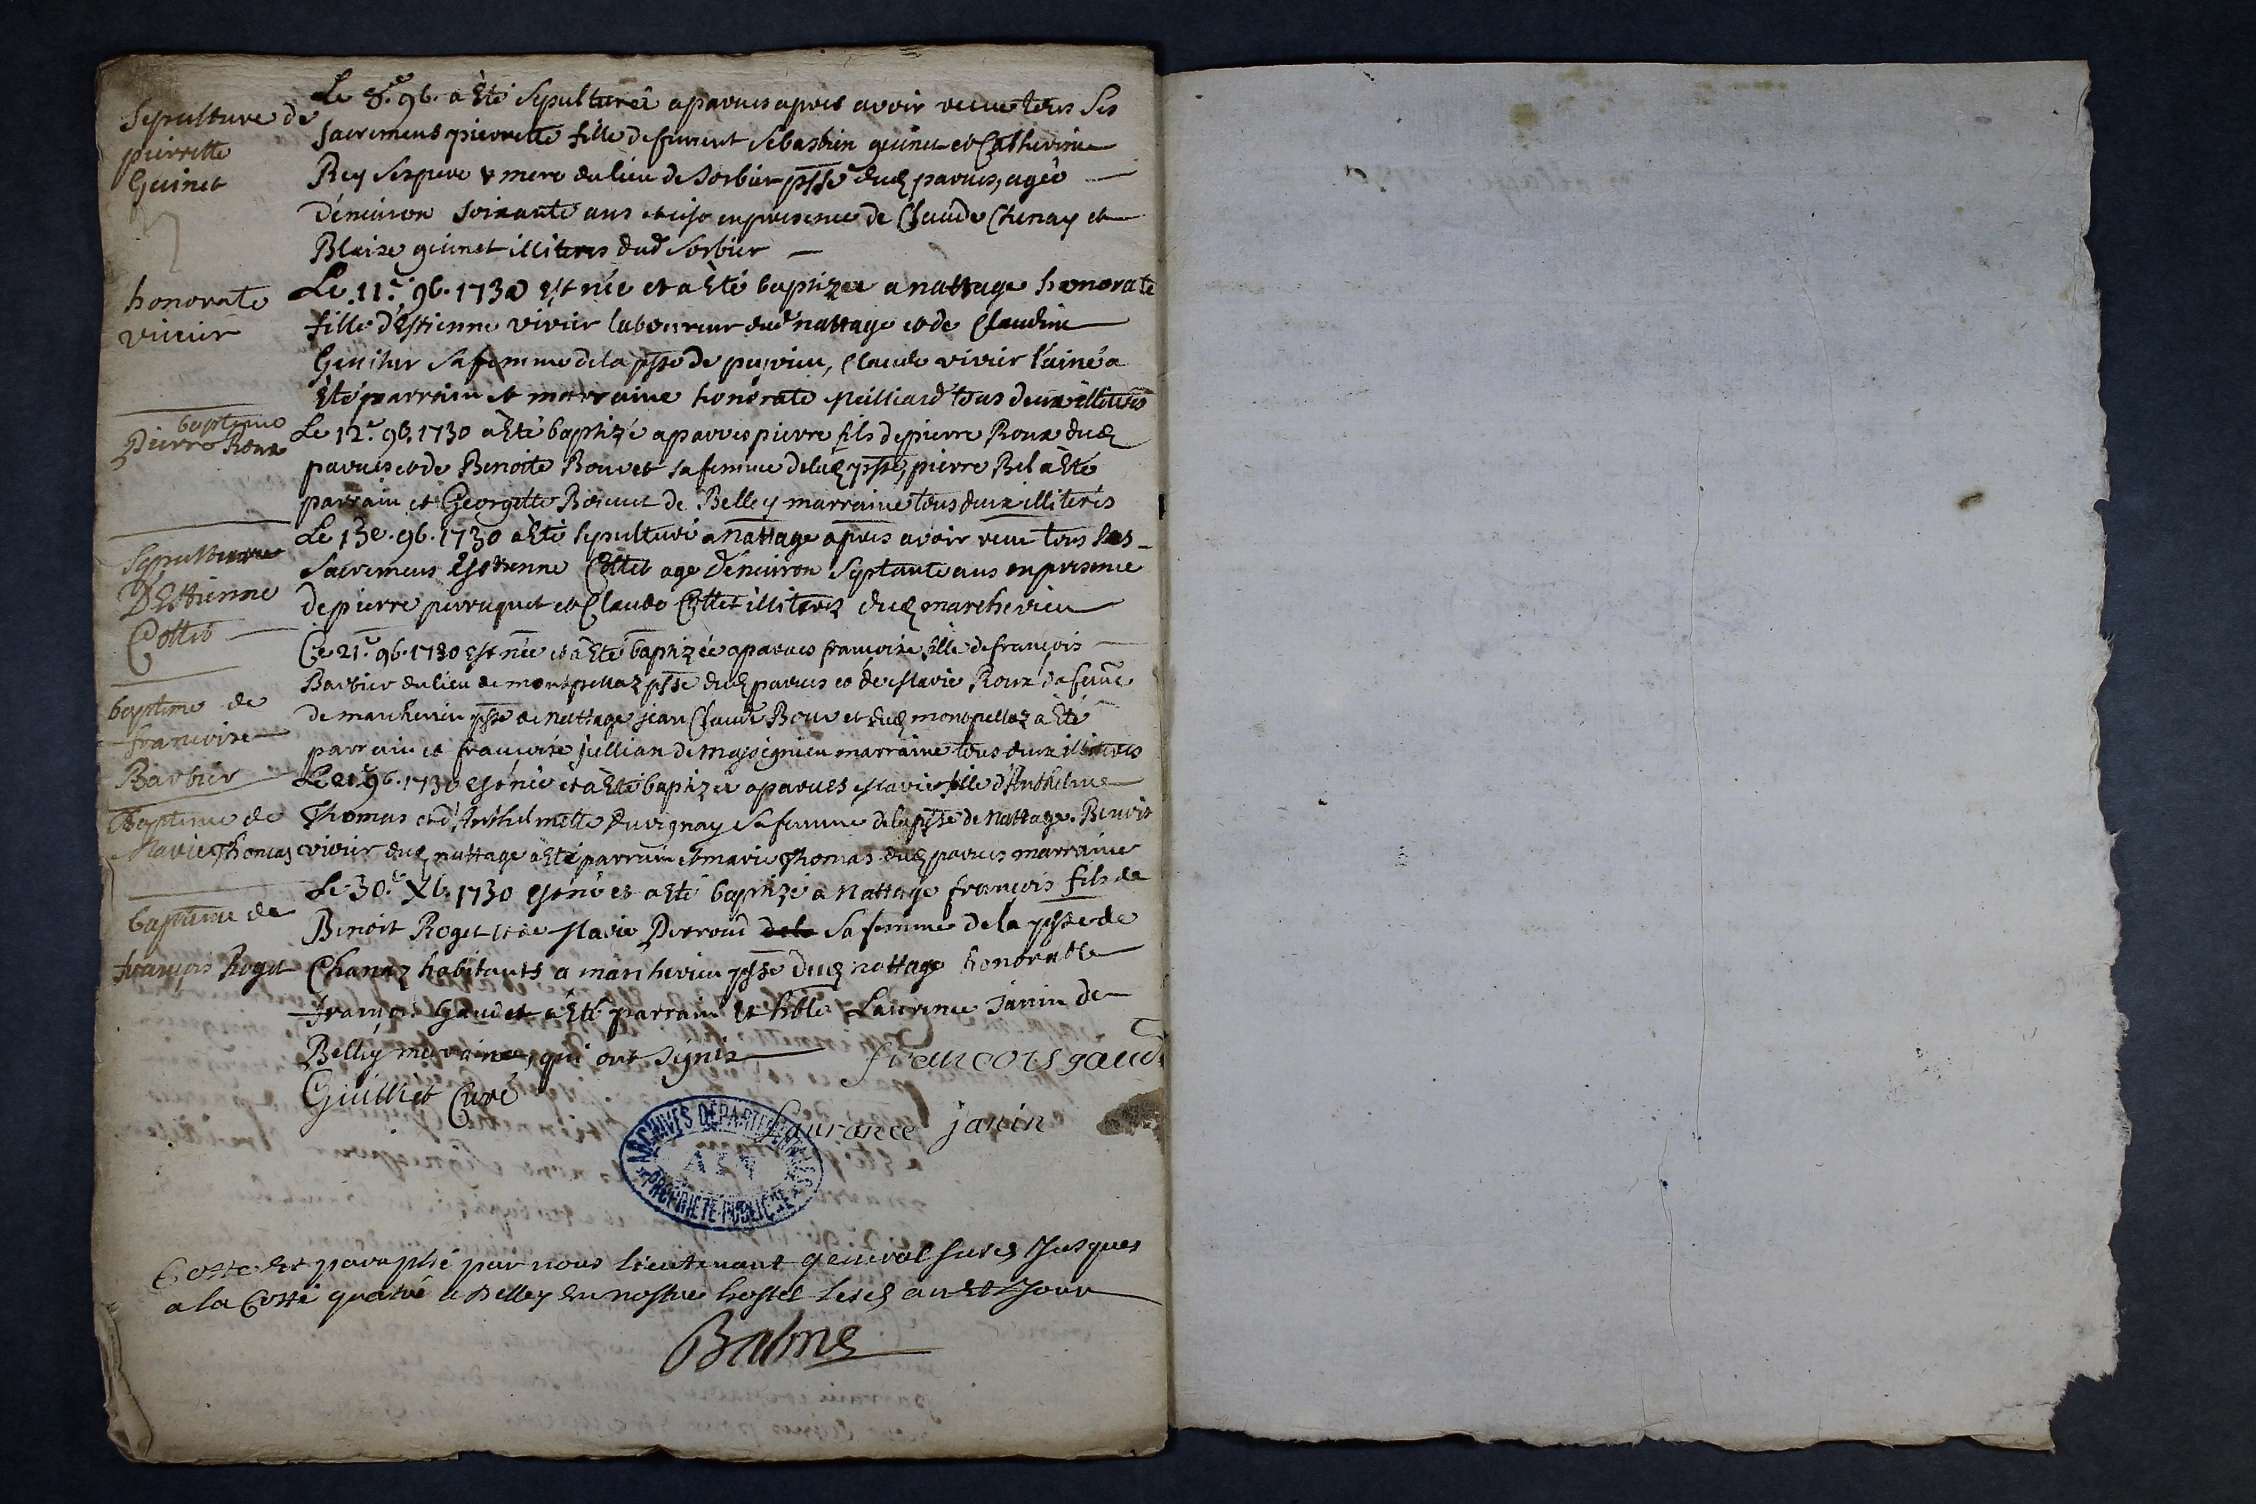 Sepulture de
pierrette
Guinet
Le 8.e 9b. a Eté sepulturéé a parves apres avoir receu tous ses
sacremens pierrette fille de furent sebastien guinet et Catherine
Rey ses pere & mere du lieu de sorbier psse dud parves, agéé
d'environ soixante ans et ce en presence de Claude Chenay et
Blaize guinet illiterés dud sorbier
honorate
vivier
Le 11.e 9b. 1730 est néé et a Eté baptizéé a nattage honorate
fille d'Estienne vivier laboureur dud nattage et de Claudine
sa femme de la psse de pugieu, Claude vivier l'ainé a
Eté parrain et marraine honorate tous deux illiterés
baptême
Pierre Roux
Le 12.e 9b. 1730 a Eté baptizé a parves pierre fils de pierre Roux dud
parves et de Benoite Bouvet sa femme de lad psse, pierre Bel a Eté
parrain et Georgette Bouvet de Belley marraine tous deux illiterés
Sepulture
D'Estienne
Cottet
Le 13e. 9b. 1730 a Eté sepulturé a nattage apres avoir receu tous les
sacremens Estienne Cottet agé d'environ septante ans en presence
de pierre perruquet et Claude Cottet illiterez dud marcherieu
baptême de
francoise
Barbier
Le 21.e 9b. 1730 est néé et a Eté baptizéé a parves francoise fille de françois
Barbier du lieu de montpellaz psse dud parves et de Marie Roux sa feme
de marcherieu psse de nattage jean Claude Bouvet dud montpellaz a Eté
parrain et francoise jullian de Massignieu marraine tous deux illiterés
Baptême de
Marie Thomas
Le 21.e 9b. 1730 est néé et a Eté baptizéé a parves Marie fille d'Anthelme
Thomas et d'Anthelmette Duvignay sa femme de la psse de Nattage. Benoit
vivier dud nattage a Eté parrain et marie Thomas dud parves marraine
baptême de
françois Roget
Le 30.e Xb. 1730 est né et a Eté baptizé a Nattage françois fils de
Benoit Roget et de Marie Perroud de la sa femme de la psse de
Chanaz habitants a marcherieu psse dud nattage honorable
françois Gaudet a Eté parrain et hble Laurence Janin de
Belley maraine, qui ont signéz
francois gaud
Guilliet Curé
Laurance janin
ARCHIVES DÉPARTEMENTALES
AIN
PROPRIÉTÉ PUBLIQUE
Cotté Et paraphé par nous lieutenant general susd Jusques
a la Cotte quatre a Belley En nostre hostel lesd an Et Jour
Balme